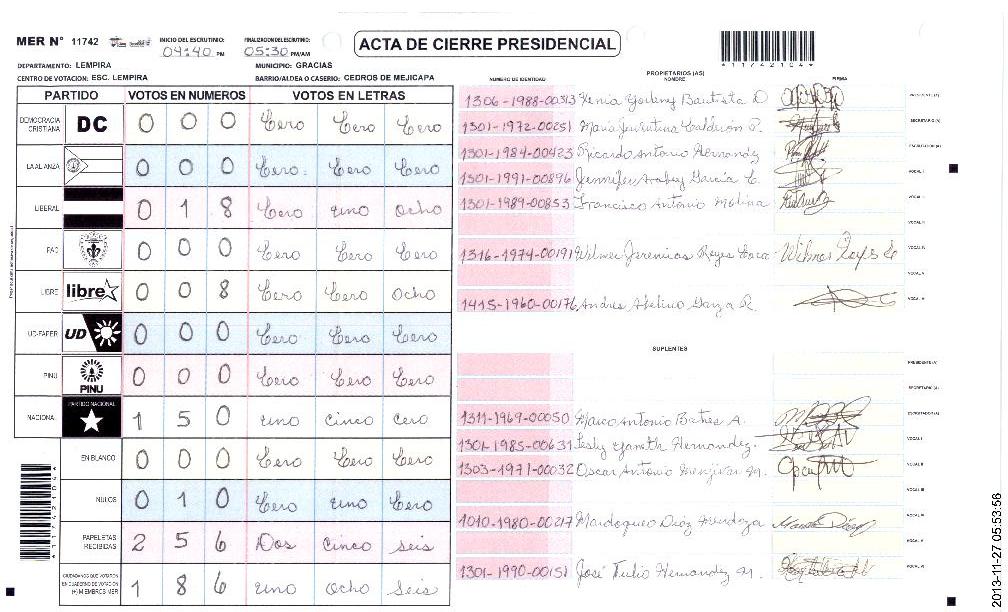 MER N° 11742
INICIO DEL ESCRUTINIO: 04:40 PM
FINALIZACION DEL ESCRUTINIO: 05:30 PM/AM
ACTA DE CIERRE PRESIDENCIAL
*11742104*
DEPARTAMENTO: LEMPIRA
MUNICIPIO: GRACIAS
CENTRO DE VOTACION: ESC. LEMPIRA
BARRIO/ALDEA O CASERIO: GEDROS DE MEJICAPA
PARTIDO VOTOS EN NUMEROS VOTOS EN LETRAS
DEMOCRACIA CRISTIANA DC 0 0 0 Cero Cero Cero
LA ALIANZA 0 0 0 Cero Cero Cero
LIBERAL 0 1 8 Cero uno ocho
PAC 0 0 0 Cero Cero Cero
LIBRE libre 0 0 8 Cero Cero Ocho
UD-FAPER UD 0 0 0 Cero Cero Cero
PINU PINU 0 0 0 Cero Cero Cero
NACIONAL PARTIDO NACIONAL 1 5 0 uno cinco cero
EN BLANCO 0 0 0 Cero Cero Cero
NULOS 0 1 0 Cero uno Cero
PAPELETAS RECIBIDAS 2 5 6 Dos cinco seis
CIUDADANOS QUE VOTARON EN CUADERNO DE VOTACION (+) MIEMBROS MER 1 8 6 uno ocho Seis
*11742104*
PROPIETARIOS (AS)
NUMERO DE IDENTIDAD NOMBRE FIRMA
1306-1988-00313 Xenia Yorleny Bautista D PRESIDENTE (A)
1301-1972-00251 Maria Juventina Calderon P. SECRETARIO (A)
1301-1984-00423 Ricardo Antonio Hernandez ESCRUTADOR (A)
1301-1991-00896 Jennifer Garcia C. VOCAL I
1301-1989-00853 Francisco Antonio Molina VOCAL II
VOCAL III
1316-1974-00191 Wilmer Jeremias Reyes Wilmer Reyes VOCAL IV
VOCAL V
1415-1960-00176 Andres Abelino Garza R. VOCAL VI
SUPLENTES
PRESIDENTE (A)
SECRETARIO (A)
1311-1969-00050 Marco Antonio Batres A. ESCRUTADOR (A)
1301-1985-00631 Lesly Yamith Hernandez. VOCAL I
1303-1971-00032 Oscar Antonio M. VOCAL II
VOCAL III
1010-1980-00217 Mardoqueo Diaz Mendoza VOCAL IV
VOCAL V
1301-1990-00151 José Tulio Hernandez M. VOCAL VI
2013-11-27 05:53:56